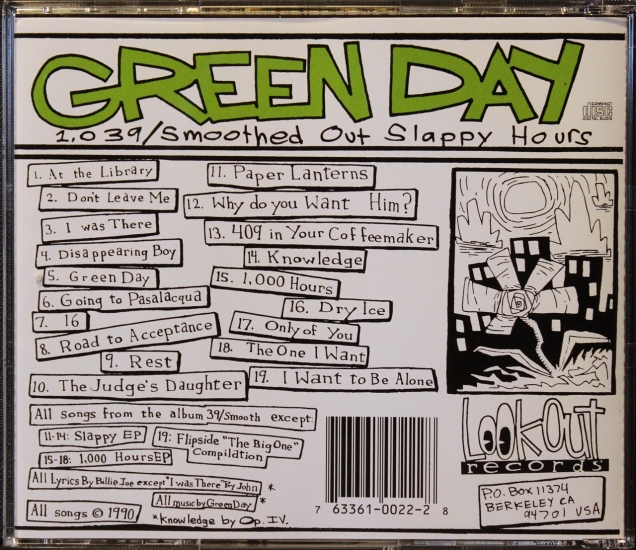 GREEN DAY
COMPACT
disc
DIGITAL AUDIO
1,039/Smoothed Out Slappy Hours
1. At the Library
2. Don't Leave Me
3. I was There
4. Disappearing Boy
5. Green Day
6. Going to Pasalacqua
7. 16
8. Road to Acceptance
9. Rest
10. The Judge's Daughter
11. Paper Lanterns
12. Why do you Want Him?
13. 409 in Your Coffeemaker
14. Knowledge
15. 1,000 Hours
16. Dry Ice
17. Only of You
18. The One I Want
19. I Want to Be Alone
All songs from the album 39/Smooth except:
11-14: Slappy EP
15-18: 1,000 Hours EP
19: Flipside "The Big One"
Compilation
All Lyrics By Billie Joe except "I was There" By John *
All music by Green Day *
All songs © 1990
*Knowledge by Op. IV.
7 63361-0022-2 8
Lookout
records
P.O. Box 11374
BERKELEY CA
94701 USA